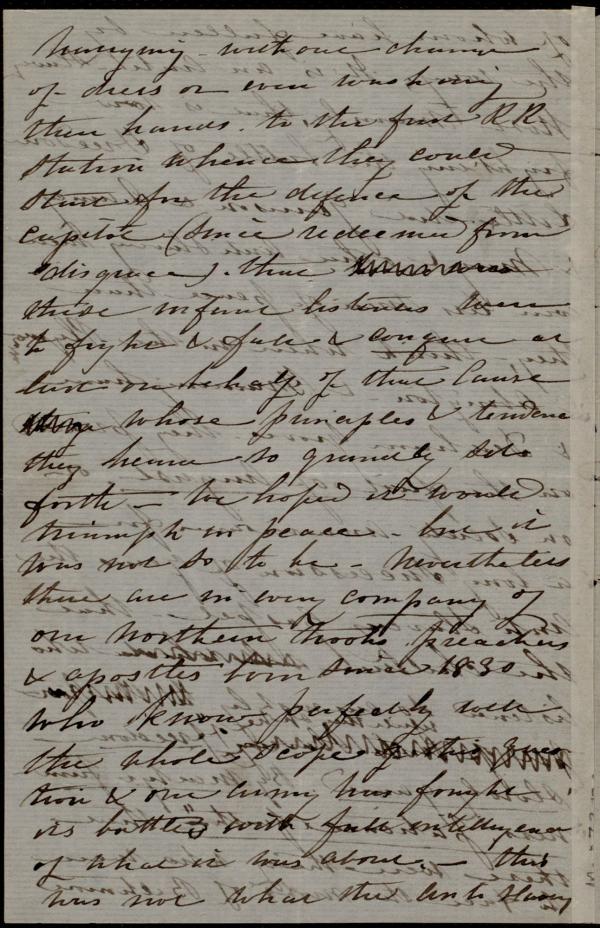 hurrying - without change
of dress or even washing
their hands. to the first R R
station whence they could
start for the defence of the
capitol (since redeemed from
disgrace). that
these infant listeners were
to fight & fall & conquer at
last on behalf of that Cause
whose principles & tendency
they heard so grandly set
forth - We hoped it would
triumph in peace - but it
was not so to be - Nevertheless
there are in every company of
our northern troops, preachers
& apostles born since 1830
who know perfectly well
the whole scope of this ques
tion & our army has fought
its battles with full intelligence
of what it was about. - this
was not what the Anti Slavery